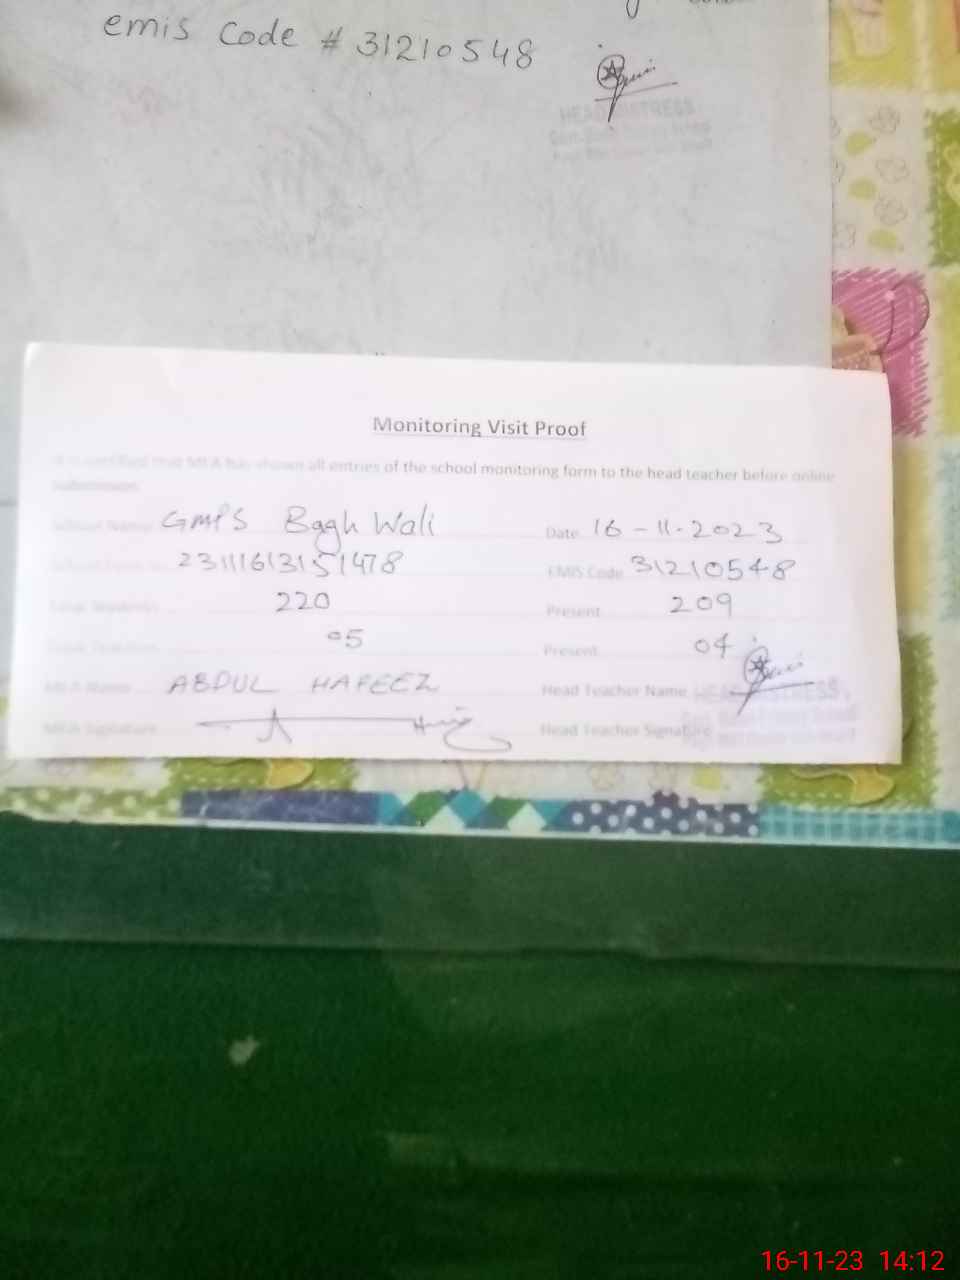 emis Code # 31210548
HEADMISTRESS
Monitoring Visit Proof
It is certified that MEA has shown all entries of the school monitoring form to the head teacher before online
submission.
School Name GMPS Bagh Wali Date 16-11-2023
23111613151478 EMIS Code 31210548
Total Students 220 Present 209
05 Present 04
MEA Name ABDUL HAFEEZ Head Teacher Name HEADMISTRESS
MEA Signature Head Teacher Signature
16-11-23 14:12